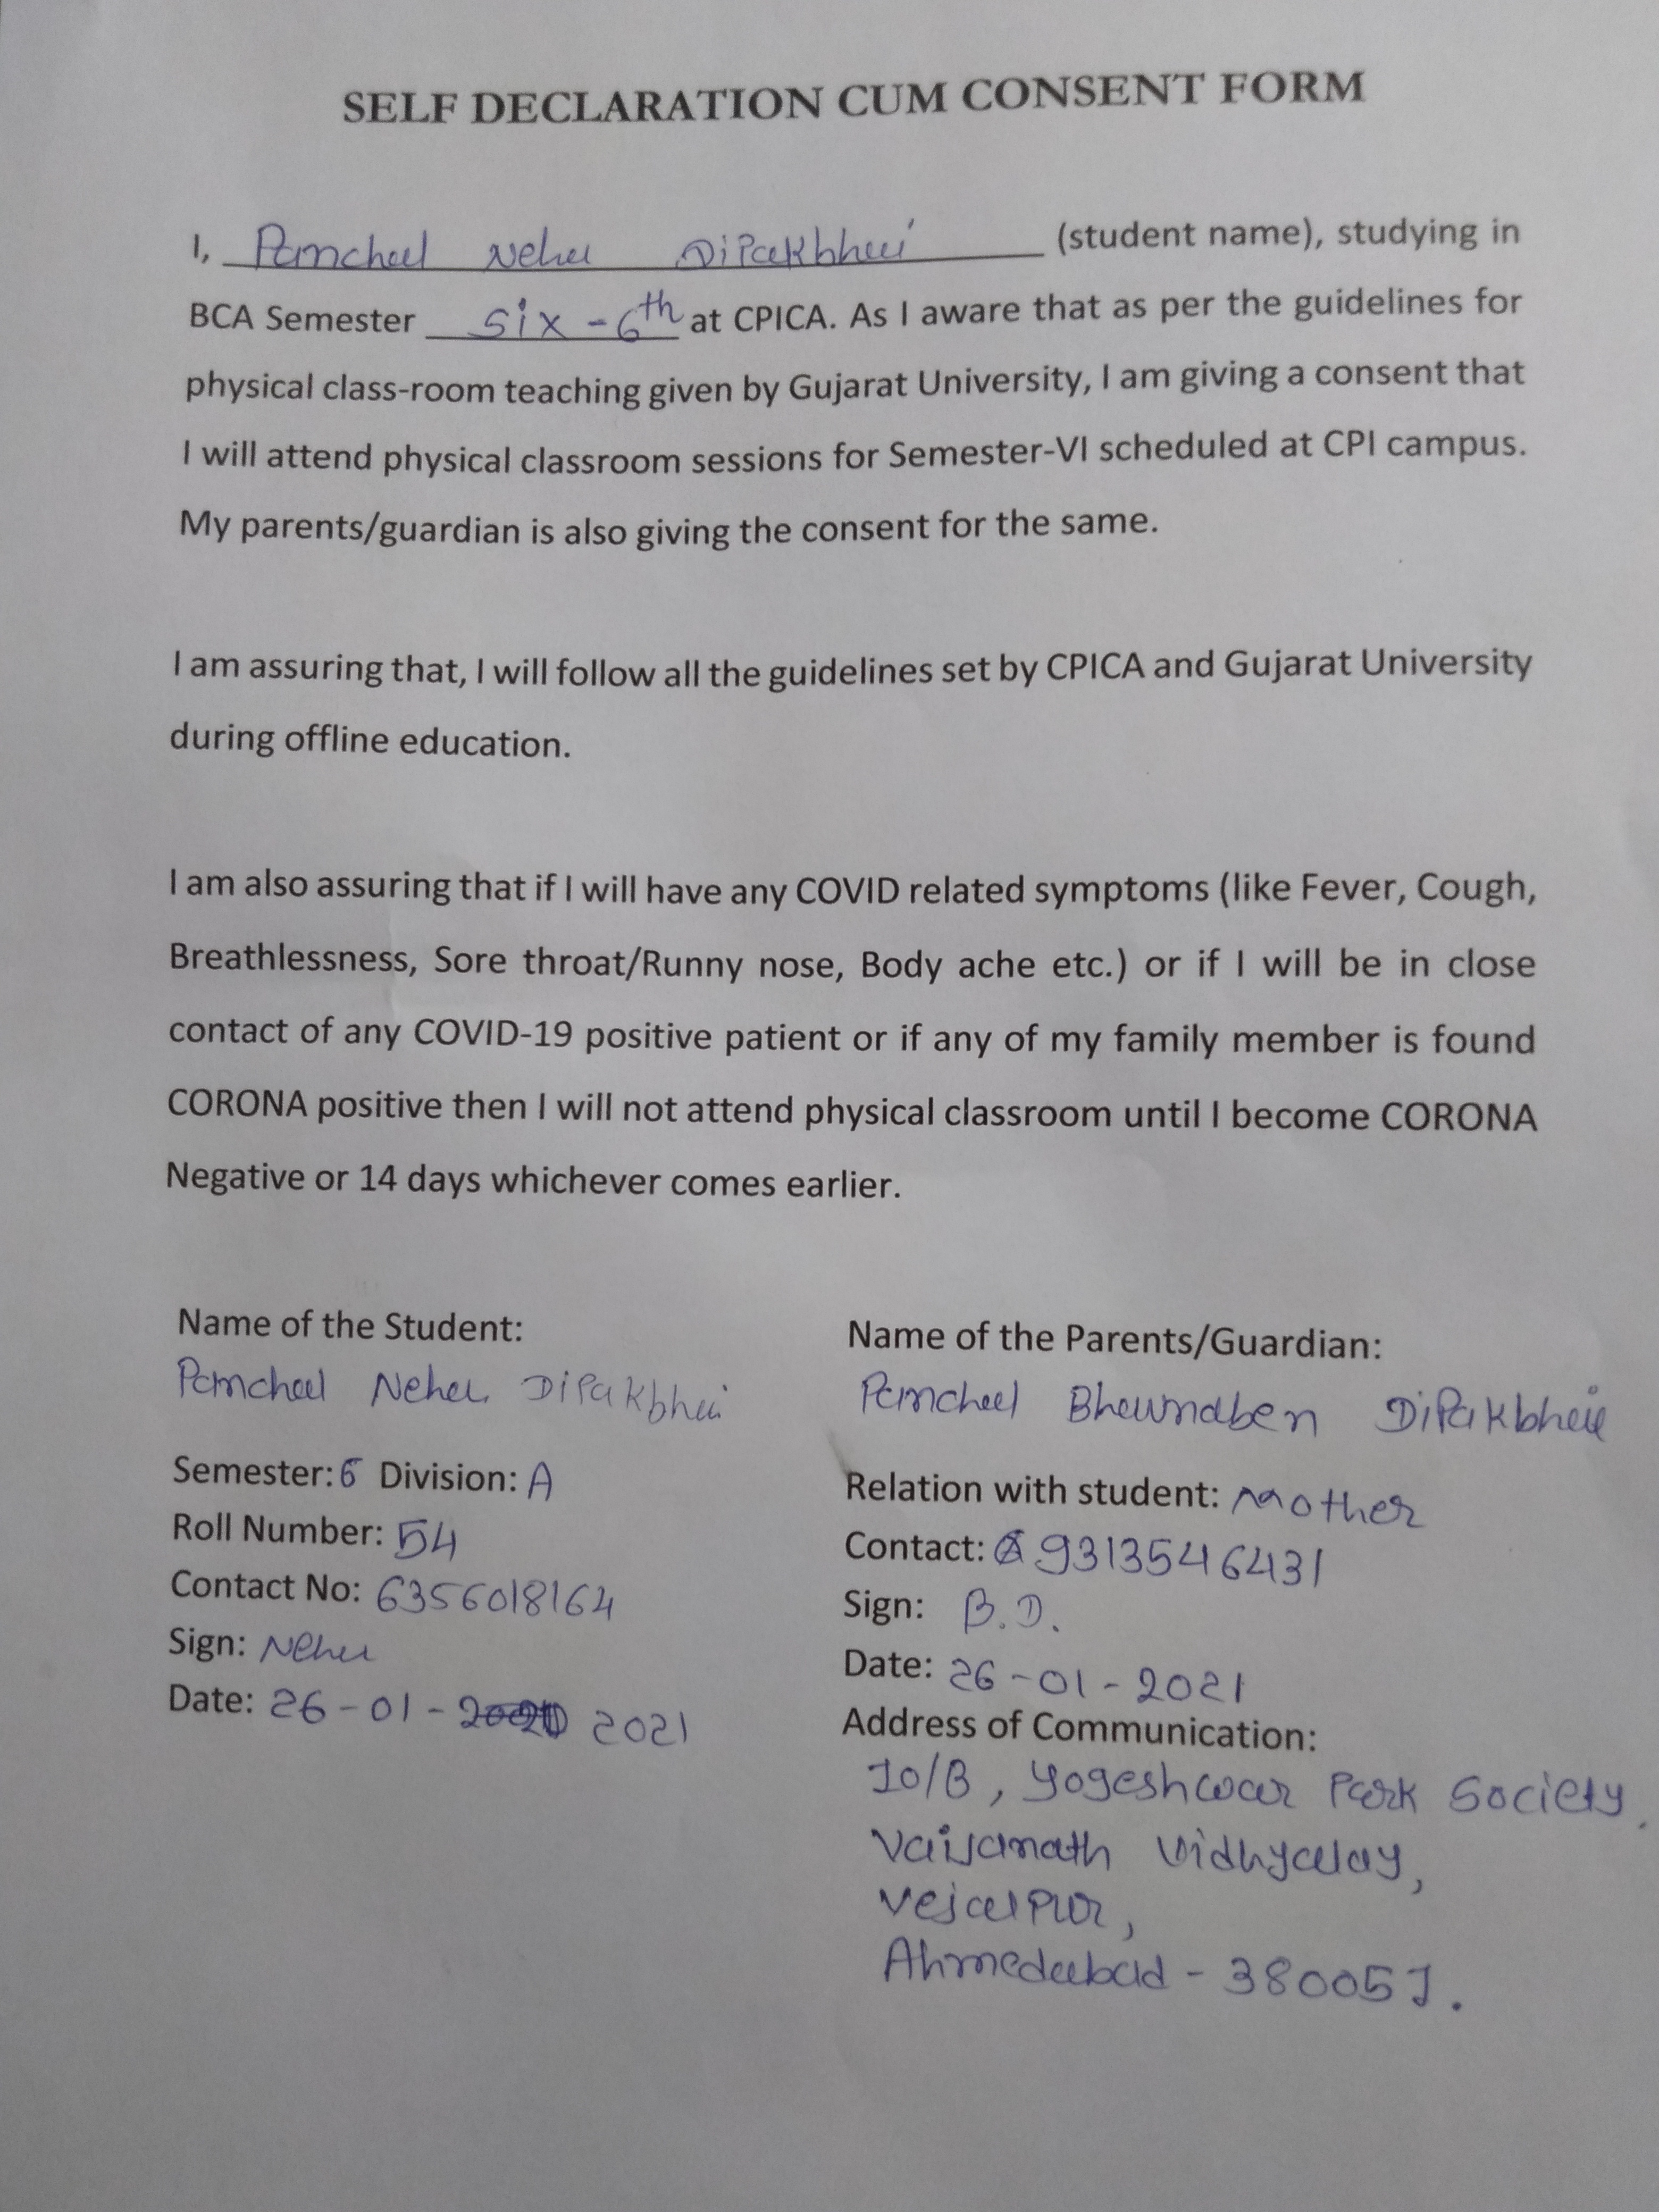 SELF DECLARATION CUM CONSENT FORM
I, Panchal Neha Dipakbhai (student name), studying in
BCA Semester six - 6th at CPICA. As I aware that as per the guidelines for
physical class-room teaching given by Gujarat University, I am giving a consent that
I will attend physical classroom sessions for Semester-VI scheduled at CPI campus.
My parents/guardian is also giving the consent for the same.
I am assuring that, I will follow all the guidelines set by CPICA and Gujarat University
during offline education.
I am also assuring that if I will have any COVID related symptoms (like Fever, Cough,
Breathlessness, Sore throat/Runny nose, Body ache etc.) or if I will be in close
contact of any COVID-19 positive patient or if any of my family member is found
CORONA positive then I will not attend physical classroom until I become CORONA
Negative or 14 days whichever comes earlier.
Name of the Student:
Panchal Neha Dipakbhai
Semester: 6 Division: A
Roll Number: 54
Contact No: 6356018164
Sign: Neha
Date: 26-01- 2021
Name of the Parents/Guardian:
Panchal Bhavnaben Dipakbhai
Relation with student: Mother
Contact: 9313546431
Sign: B.D.
Date: 26-01-2021
Address of Communication:
10/B, Yogeshwar Park Society,
Vaijanath Vidhyalay,
Vejalpur,
Ahmedabad - 380051.